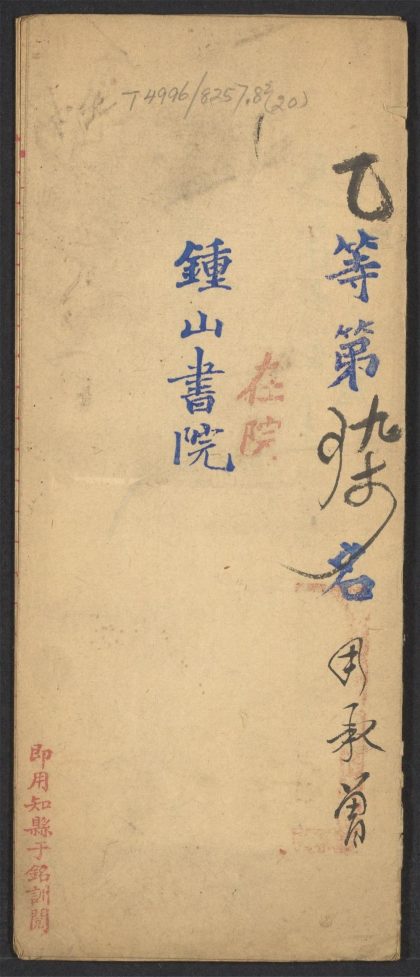 T4996/8257.85(20)
乙等第柒名 周承曾
在院
鍾山書院
即用知縣于銘訓閱